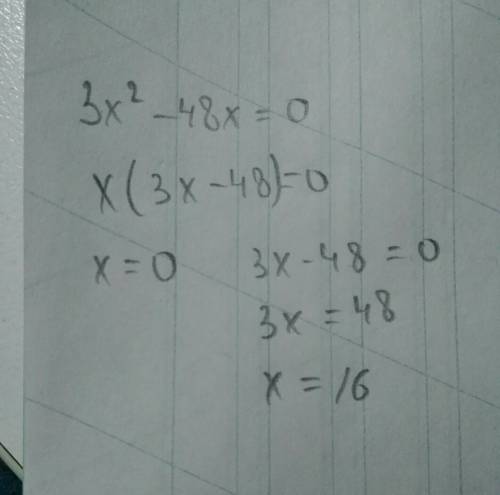 3x² - 48x = 0
x(3x - 48) = 0
x = 0 3x - 48 = 0
3x = 48
x = 16